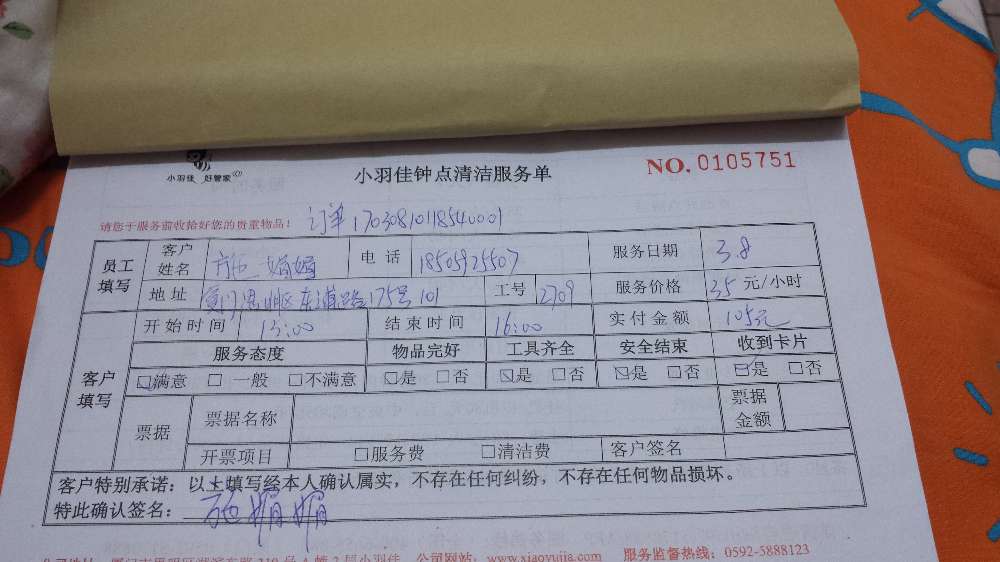 小羽佳 好管家
小羽佳钟点清洁服务单
NO.0105751
请您于服务前收拾好您的贵重物品!
订单 17030810118540001
员工填写 客户姓名 施媚媚 电话 18505925507 服务日期 3.8
地址 厦门思明区东浦路175号101 工号 2709 服务价格 35元/小时
客户填写 开始时间 13:00 结束时间 16:00 实付金额 105元
服务态度 物品完好 工具齐全 安全结束 收到卡片
☑满意 □一般 □不满意 ☑是 □否 ☑是 □否 ☑是 □否 ☑是 □否
票据 票据名称 票据金额
开票项目 □服务费 □清洁费 客户签名
客户特别承诺:以上填写经本人确认属实,不存在任何纠纷,不存在任何物品损坏。
特此确认签名: 施媚媚
小羽佳 公司网站:www.xiaoyujia.com 服务监督热线:0592-5888123